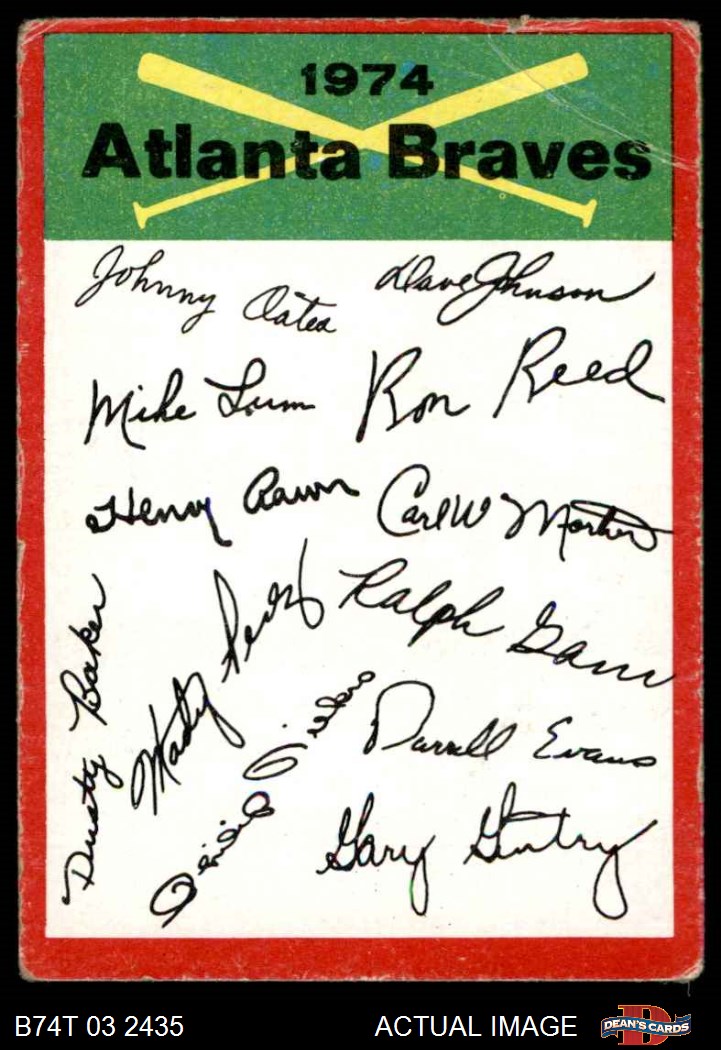 1974
Atlanta Braves
Johnny Oates
Dave Johnson
Mike Lum
Ron Reed
Henry Aaron
Carl W Morton
Ralph Garr
Marty Perez
Dusty Baker
Darrell Evans
Gary Gentry
B74T 03 2435
ACTUAL IMAGE
D
DEAN'S CARDS